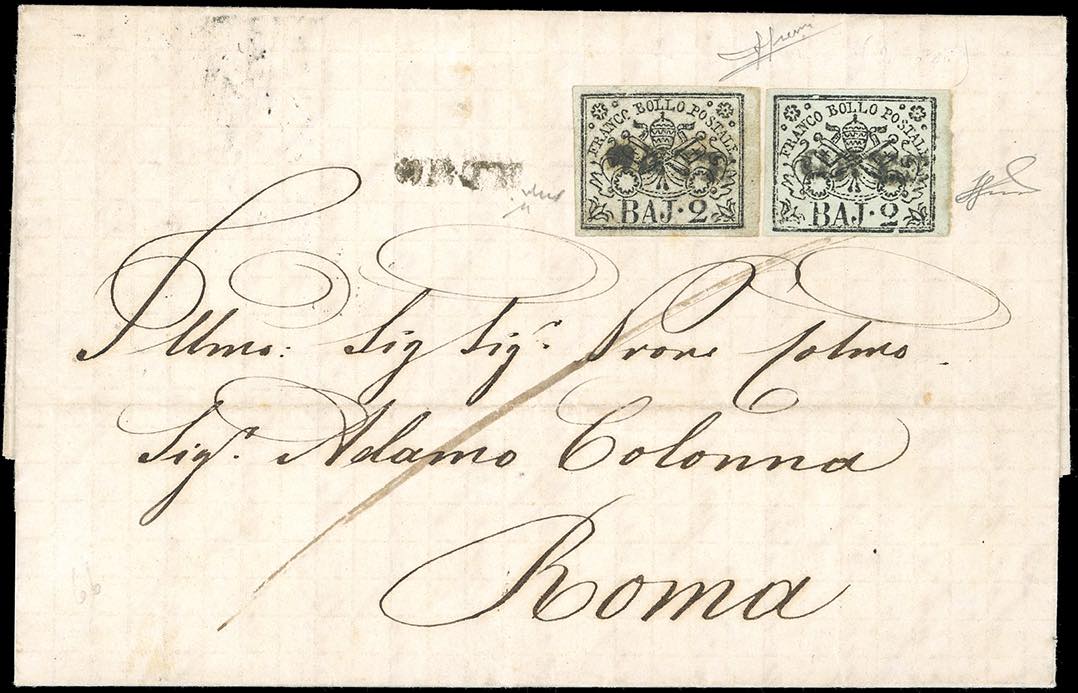 FRANCO BOLLO POSTALE
BAJ. 2
FRANCO BOLLO POSTALE
BAJ. 2
Illmo: Sig Sigr. Prone Colmo
Sigr. Adamo Colonna
Roma